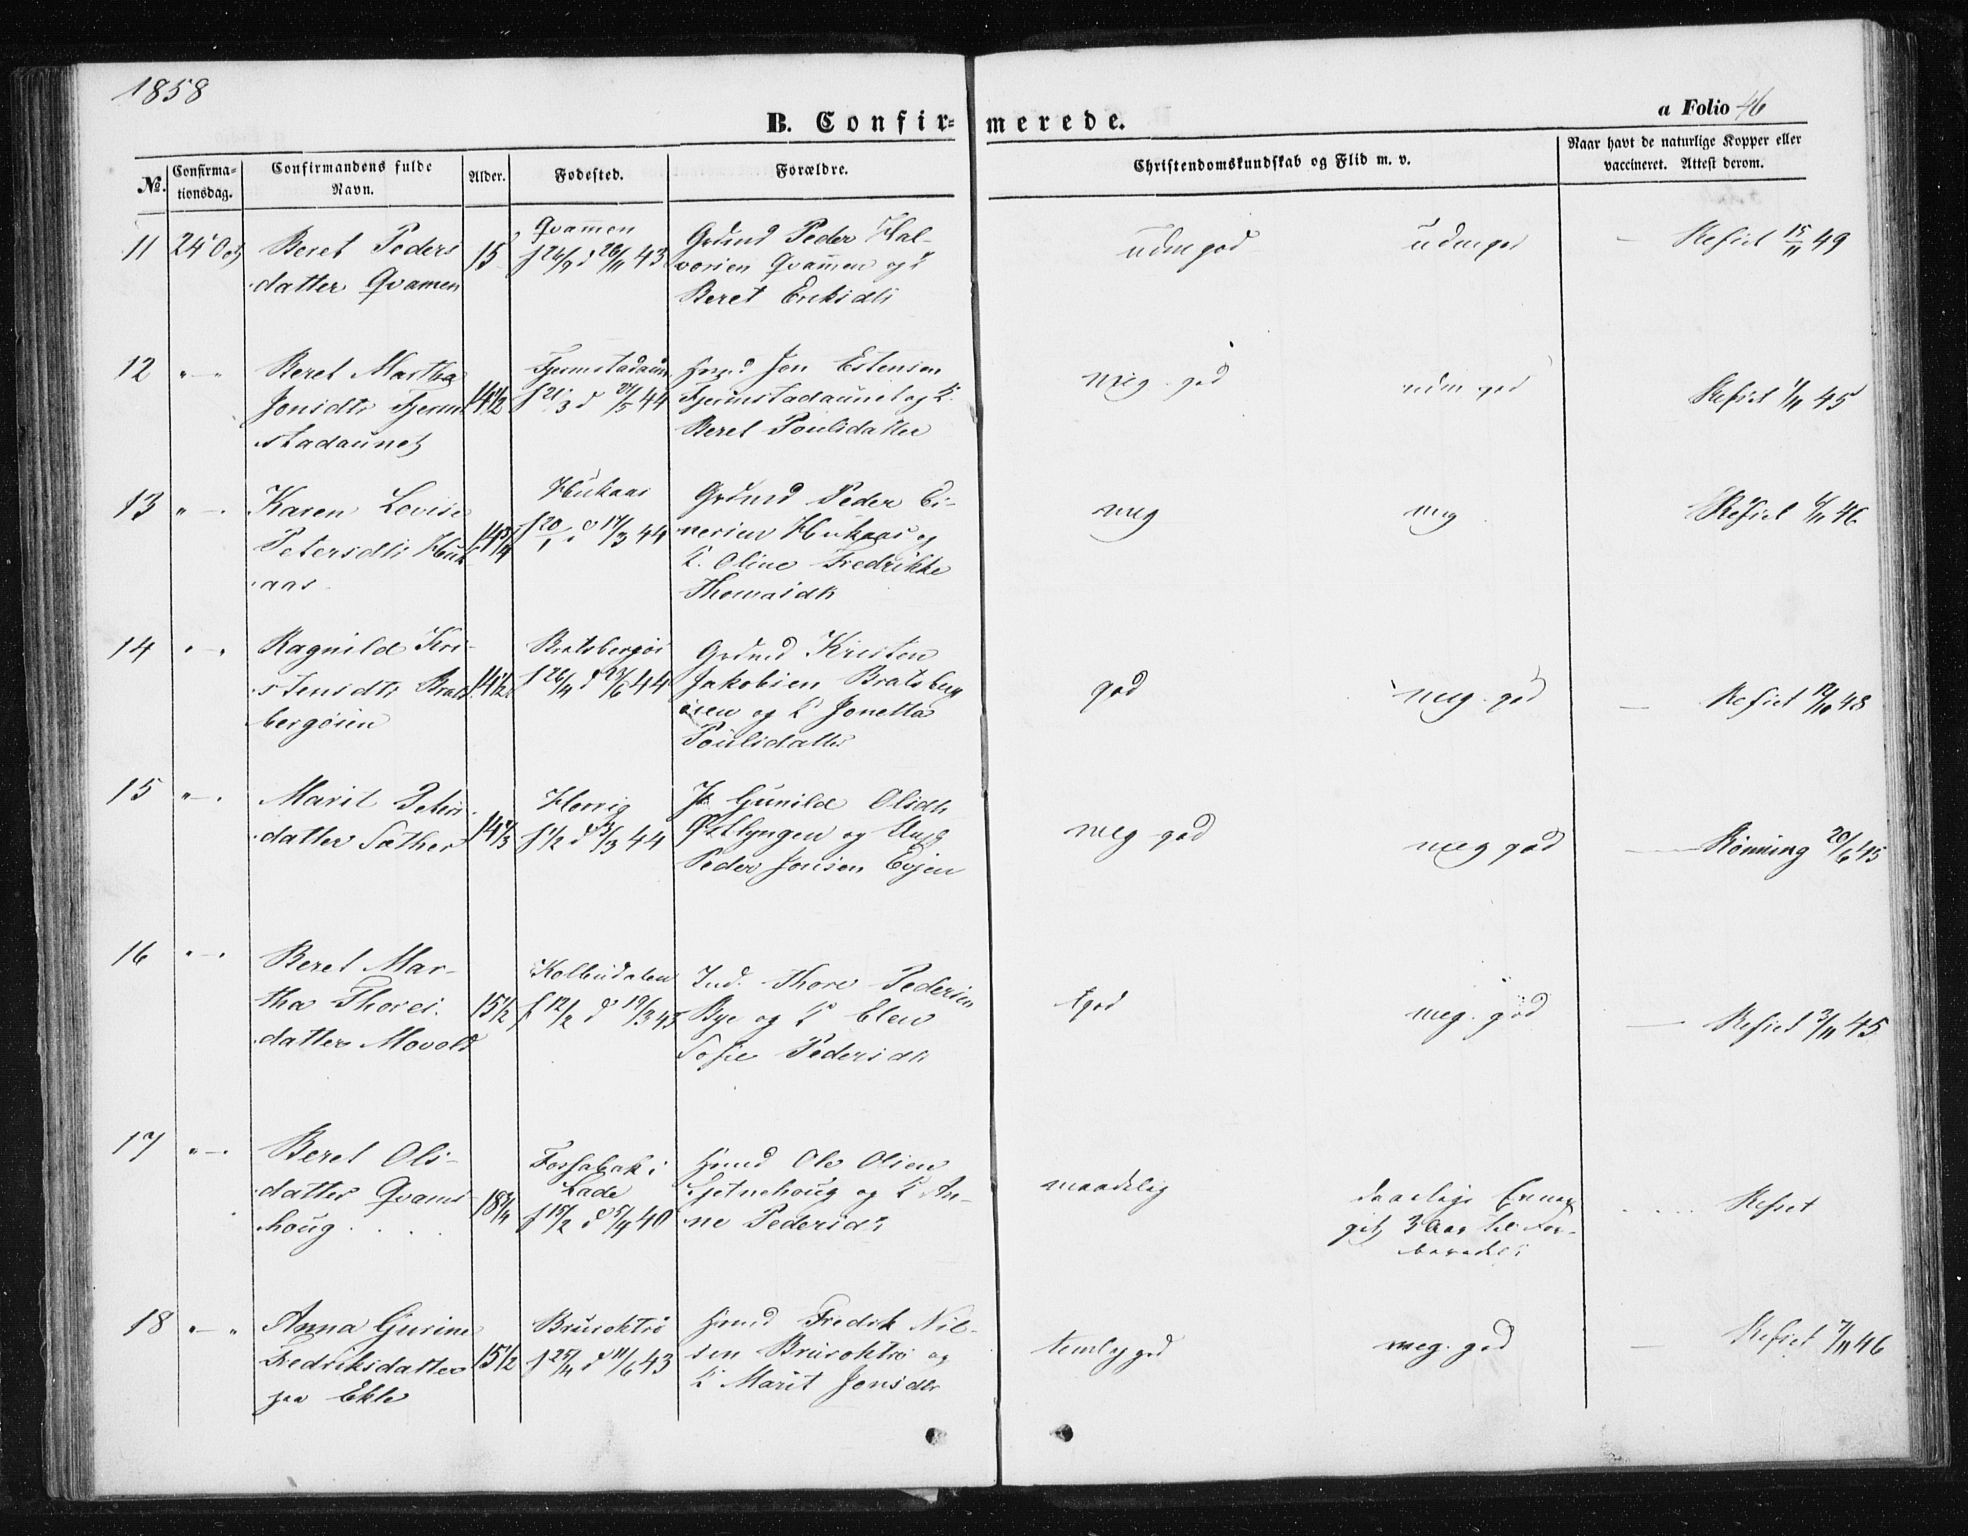 1858
B. Confir-
merede.
a Folio 46
No.
Confirma-
tionsdag.
Confirmandens fulde
Navn.
Alder.
Fodested.
Forældre.
Christendomskundskab og Flid m. v.
Naar havt de naturlige Kopper eller
vaccineret. Attest derom.
11
24 Oct
Beret Peders
datter Qvamen
15
Qvammen
f 24/9 d 26/11 43
Grdmd Peder Hal-
vorsen Qvammen og K
Beret Eriksdtr
udm god
udm god
15/11 49
12
Beret Martha
Jonsdtr Fjerm
stadaunet
14 1/2
Fjermstadaun
f 21/3 d 27/5 44
Hsmd Jon Estensen
Fjermstadaunet og K.
Beret Poulsdatter
meg. god
udm god
1/11 45
13
Karen Lovise
Petersdtr Huk
aas
14 3/4
Hukaas
f 20/1 d 17/3 44
Grdmd Peder Ei-
nersen Hukaas og
K. Oline Fredrikke
Thomasdtr
meg
meg
6/11 46
14
Ragnild Kri-
stensdtr Brats
bergøien
14 1/2
Bratsbergøi
f 26/4 d 23/6 44
Grdmd Kristen
Jakobsen Bratsberg
øien og K Jonetta
Poulsdatter
god
meg. god
12/10 48
15
Marit Peters
datter Sæther
14 2/3
f 1/2 d 3/3 44
P. Gunild Olsdtr
Østlyngen og Ung
Peder Jonsen Evjen
meg god
meg god
Rønning 20/6 45
16
Beret Mar-
tha Thores
datter Movold
15 1/2
Kolbudalen
f 12/2 d 19/3 43
Ind. Thore Pedersen
Bye og K Elen
Sofie Pedersdtr
tgod
meg. god
3/11 45
17
Beret Ols-
datter Qvams
houg
18 3/4
Fossabak i
Lade
f 15/2 d 5/4 40
Hsmd Ole Olsen
Ljetnehoug og K An-
ne Pedersdtr
maadelig
daarlige Evner
git 3 Aar til For-
beredels
18
Anna Gurine
Fredriksdatter
paa Ekle
15 1/2
Bruroktrø
f 25/4 d 11/6 43
Hsmd Fredrk Nil-
sen Bruroktrø og
K Marit Jonsdtr
temlig god
meg. god
7/11 46